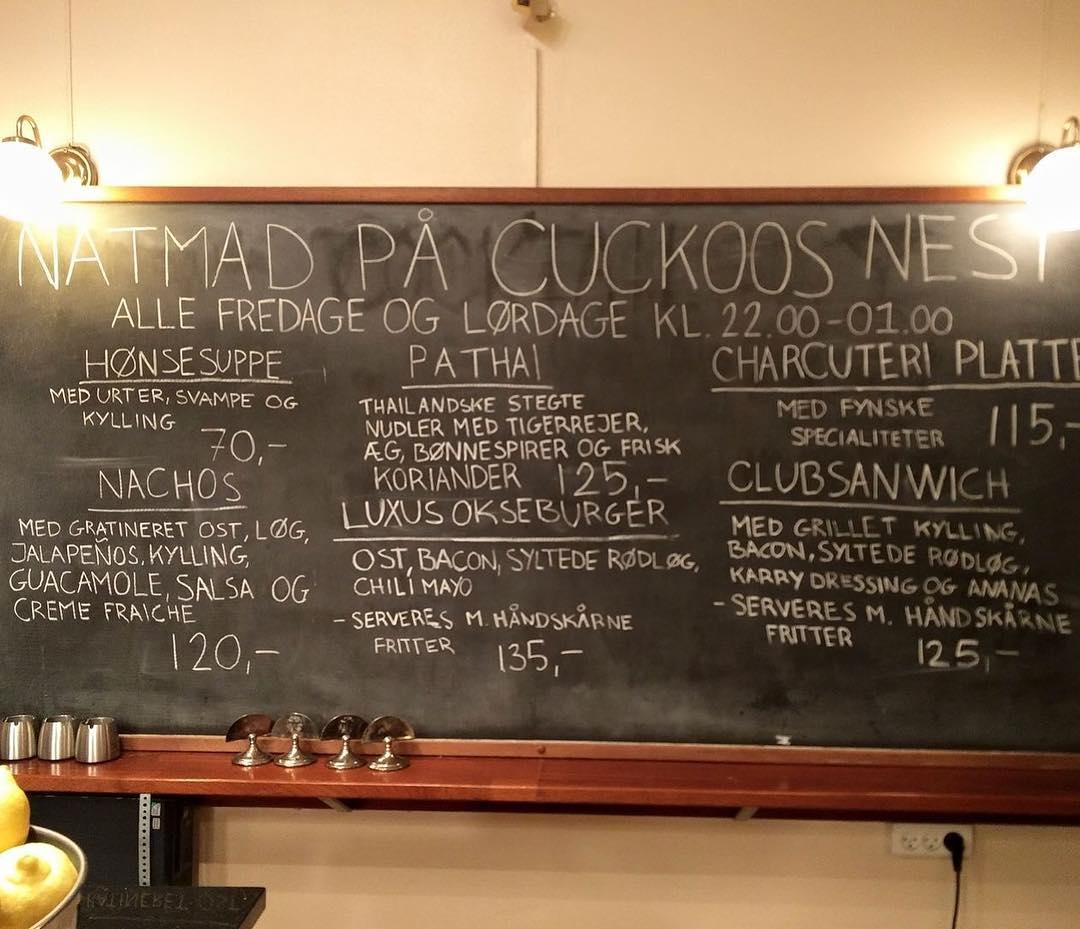 NATMAD PÅ CUCKOOS NEST
ALLE FREDAGE OG LØRDAGE KL. 22.00-01.00
HØNSESUPPE
MED URTER, SVAMPE OG
KYLLING
70,-
NACHOS
MED GRATINERET OST, LØG,
JALAPEÑOS, KYLLING,
GUACAMOLE, SALSA OG
CREME FRAICHE
120,-
PATHAI
THAILANDSKE STEGTE
NUDLER MED TIGERREJER,
ÆG, BØNNESPIRER OG FRISK
KORIANDER 125,-
LUXUS OKSEBURGER
OST, BACON, SYLTEDE RØDLØG,
CHILI MAYO
- SERVERES M. HÅNDSKÅRNE
FRITTER 135,-
CHARCUTERI PLATTE
MED FYNSKE
SPECIALITETER 115,-
CLUBSANWICH
MED GRILLET KYLLING,
BACON, SYLTEDE RØDLØG,
KARRY DRESSING OG ANANAS
- SERVERES M. HÅNDSKÅRNE
FRITTER 125,-